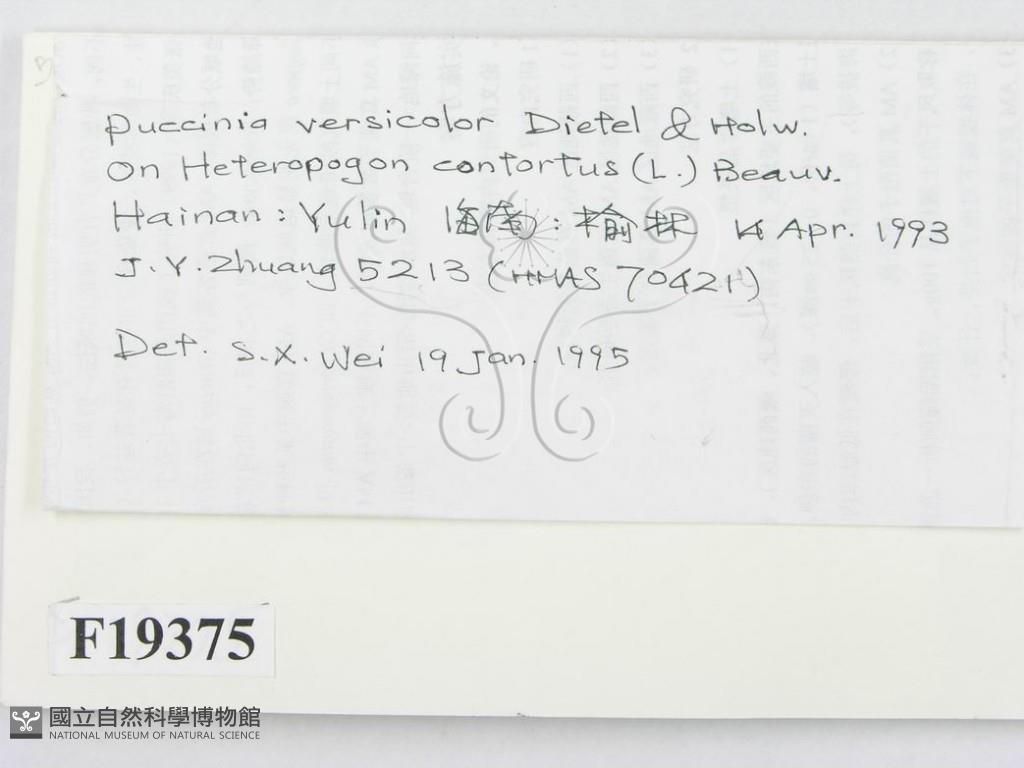 Puccinia versicolor Dietel & Holw.
On Heteropogon contortus (L.) Beauv.
Hainan: Yulin 海南: 榆林 14 Apr. 1993
J.Y. Zhuang 5213 (HMAS 70421)
Det. S.X. Wei 19 Jan. 1995
F19375
國立自然科學博物館
NATIONAL MUSEUM OF NATURAL SCIENCE